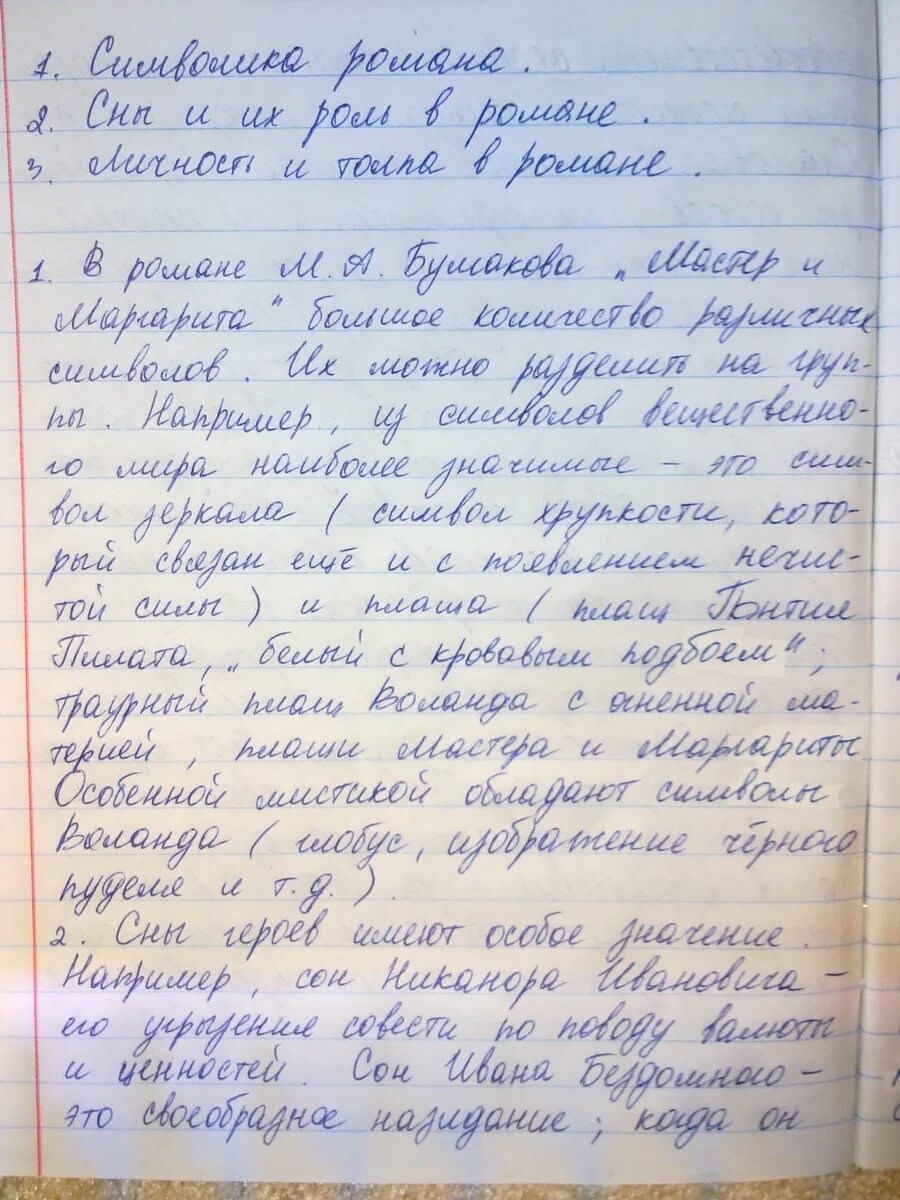 1. Символика романа.
2. Сны и их роль в романе.
3. Личность и толпа в романе.
1. В романе М. А. Булгакова „Мастер и
Маргарита" большое количество различных
символов. Их можно разделить на груп-
пы. Например, из символов вещественно-
го мира наиболее значимые – это сим-
вол зеркала (символ хрупкости, кото-
рый связан ещё и с появлением нечис-
той силы) и плаща (плащ Понтия
Пилата, „белый с кровавым подбоем";
траурный плащ Воланда с огненной ма-
терией, плащи Мастера и Маргариты
Особенной мистикой обладают символы
Воланда (глобус, изображение чёрного
пуделя и т.д.)
2. Сны героев имеют особое значение.
Например, сон Никанора Ивановича –
его угрызения совести по поводу валюты
и ценностей. Сон Ивана Бездомного –
это своеобразное назидание; когда он